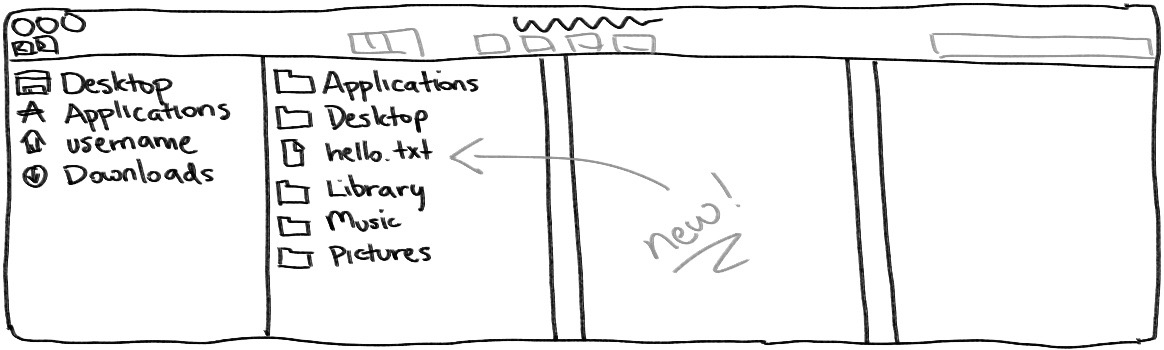 Desktop
Applications
username
Downloads
Applications
Desktop
hello.txt
Library
Music
Pictures
new!